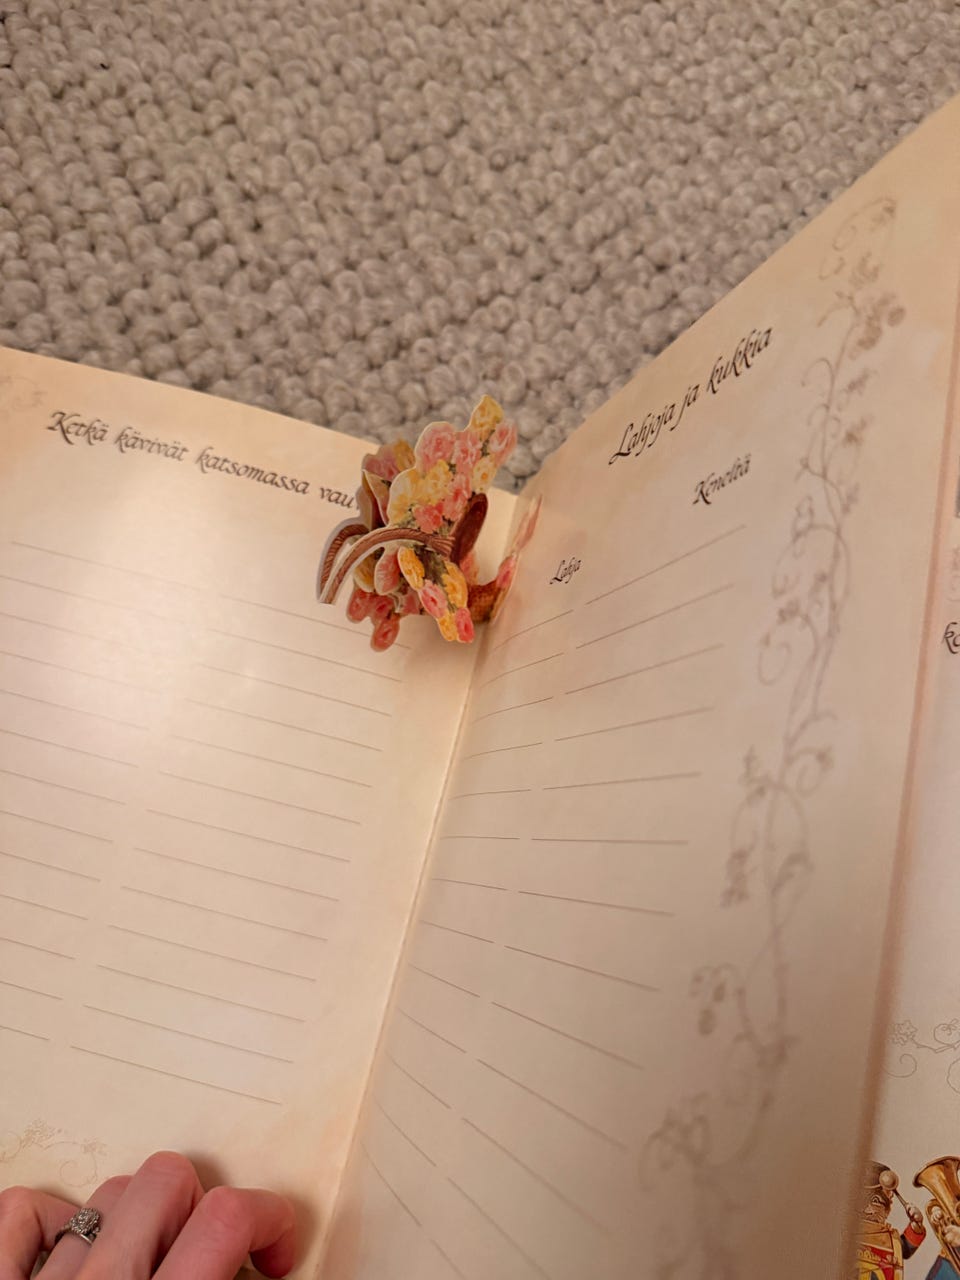 Ketkä kävivät katsomassa
Lahjoja ja kukkia
Keneltä
Lahja